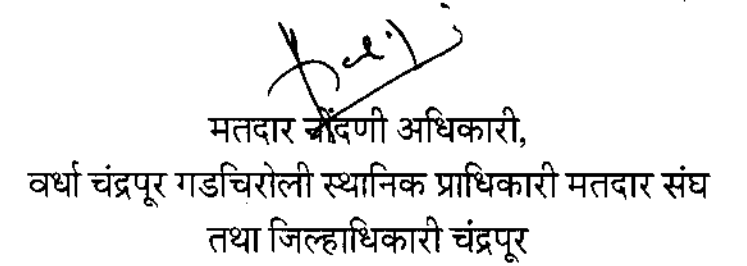 मतदार नोंदणी अधिकारी,
वर्धा चंद्रपूर गडचिरोली स्थानिक प्राधिकारी मतदार संघ
तथा जिल्हाधिकारी चंद्रपूर